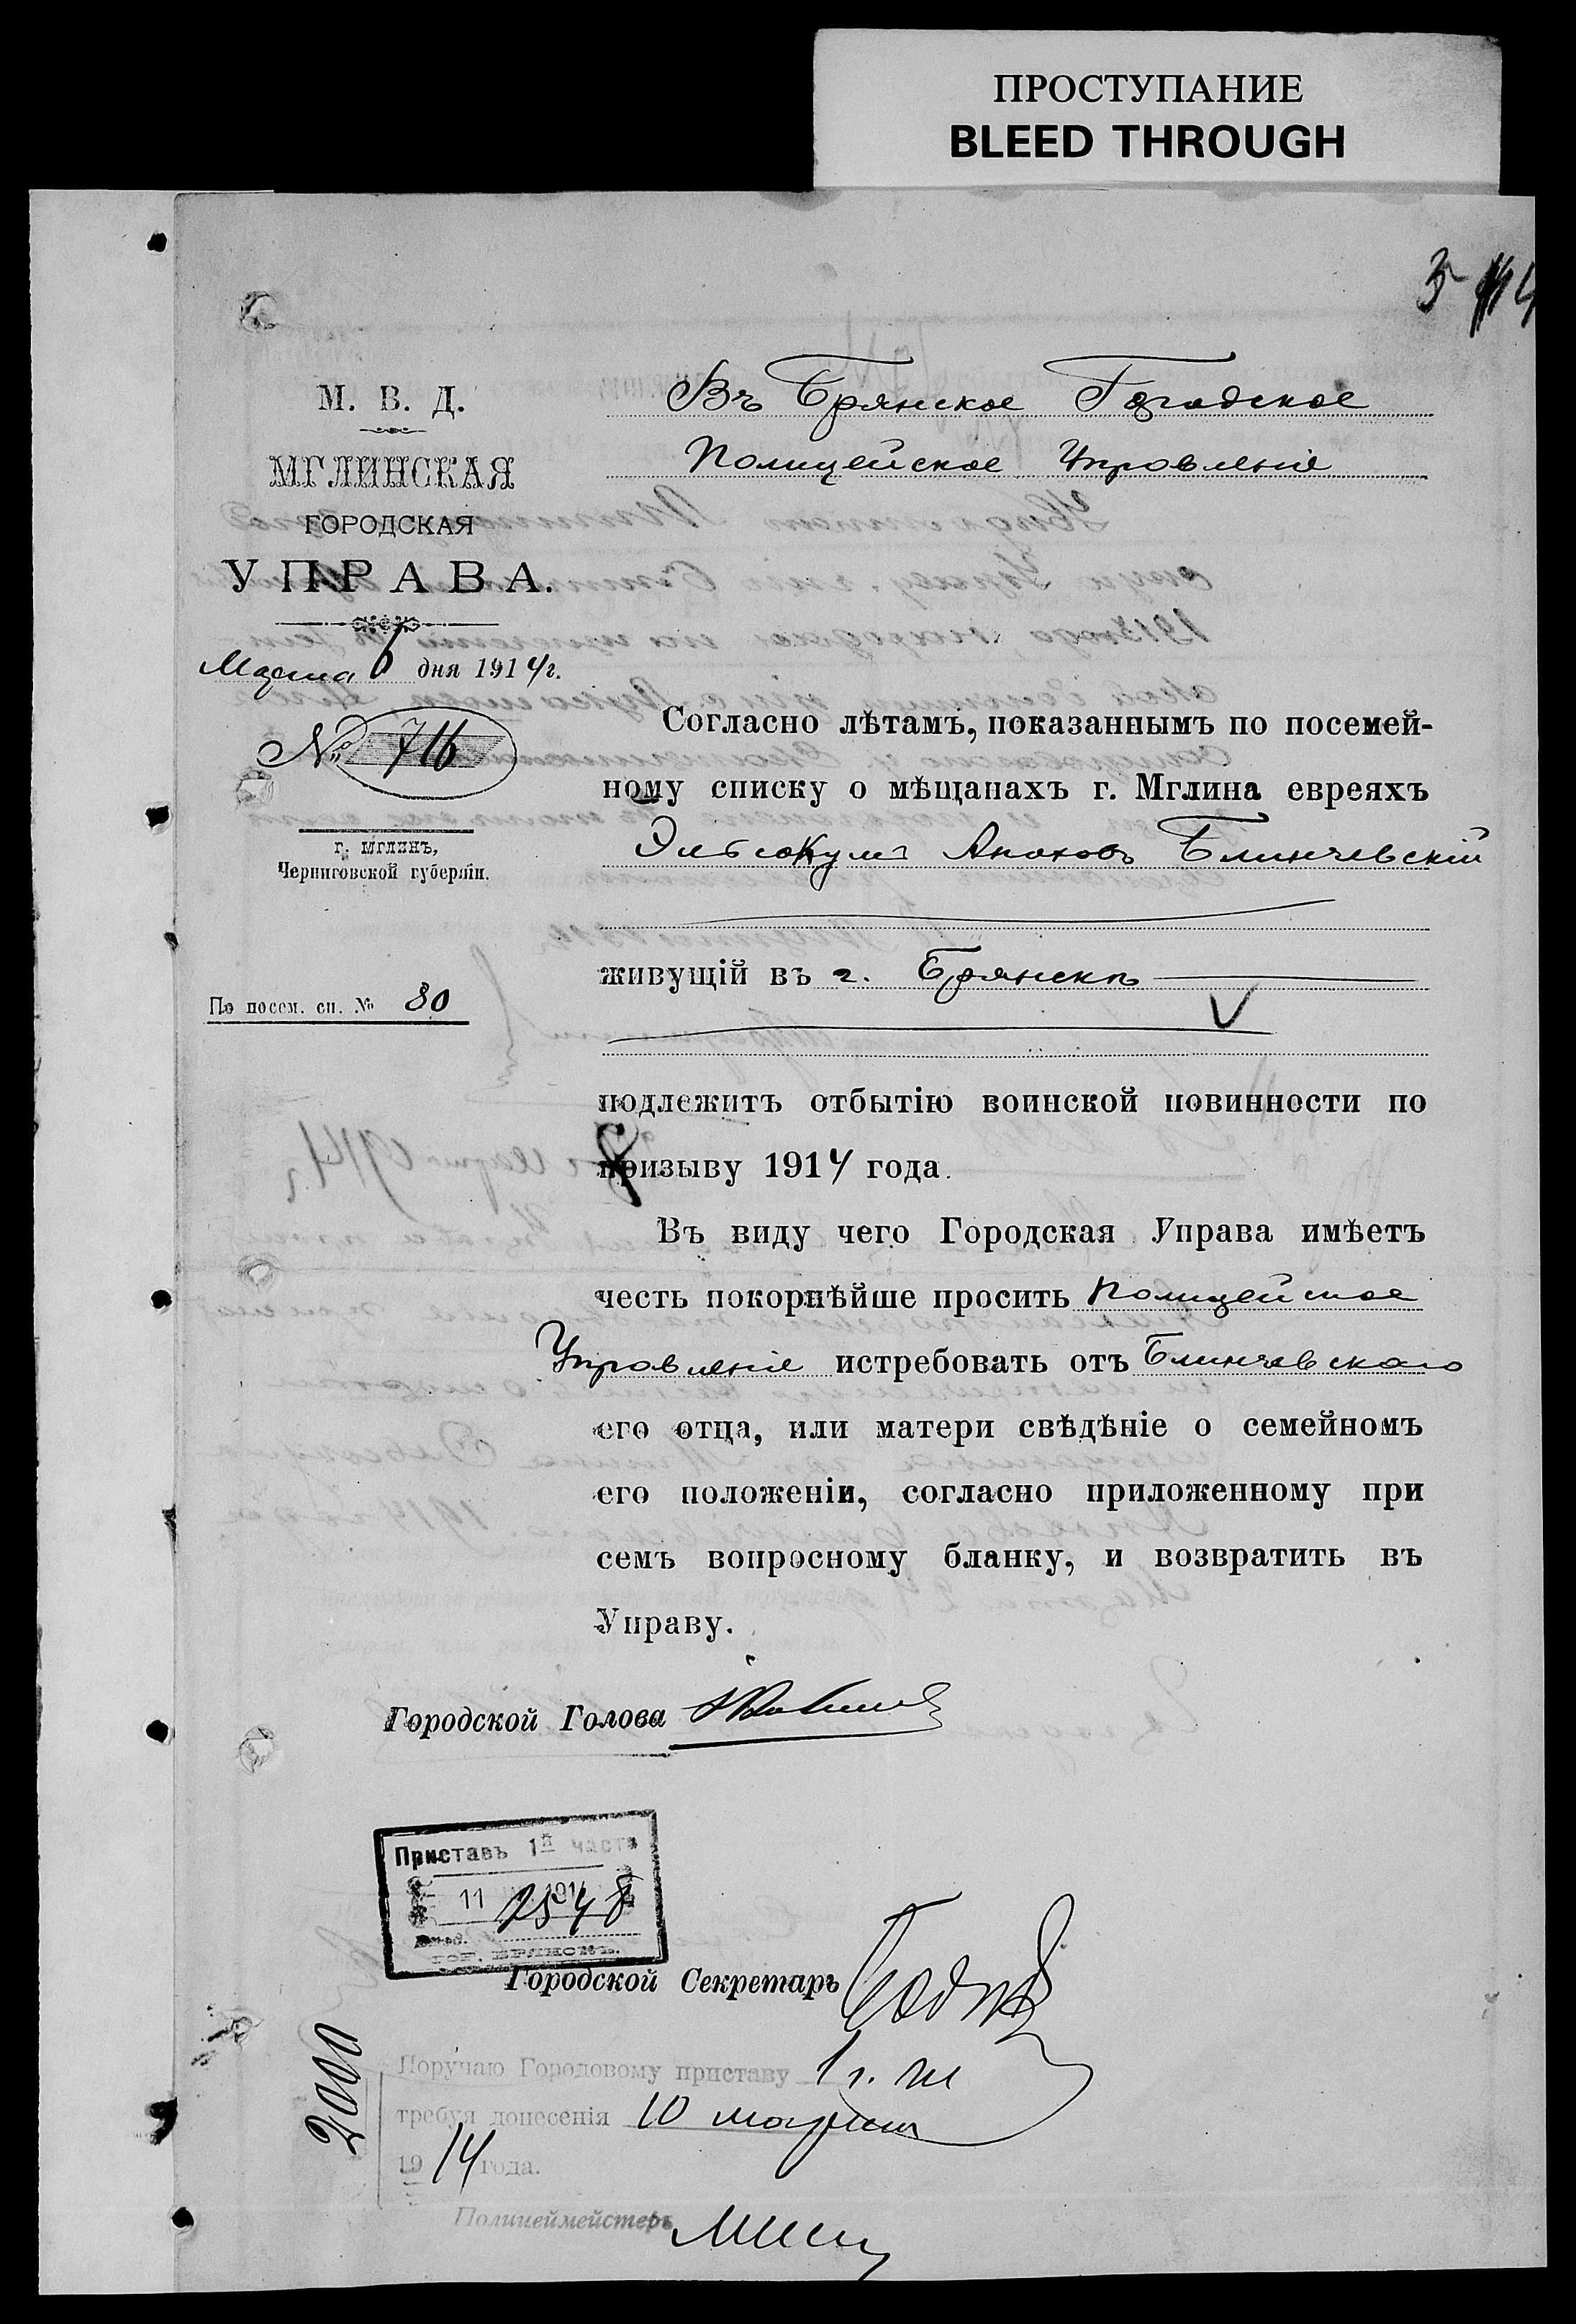 ПРОСТУПАНИЕ
BLEED THROUGH
М. В. Д.
МГЛИНСКАЯ
ГОРОДСКАЯ
УПРАВА.
Марта 6 дня 1914 г.
№ 716
г. МГЛИНЪ,
Черниговской губерніи.
По посем. сп. № 80
Въ Брянское Городское
Полицейское Управленіе
Согласно лѣтамъ, показаннымъ по посемей-
ному списку о мѣщанахъ г. Мглина евреяхъ
Блинчевскій
живущій въ г. Брянскѣ
подлежитъ отбытію воинской повинности по
призыву 1914 года.
Въ виду чего Городская Управа имѣетъ
честь покорнѣйше просить Полицейское
Управленіе истребовать отъ Блинчевскаго
его отца, или матери свѣдѣніе о семейномъ
его положеніи, согласно приложенному при
семъ вопросному бланку, и возвратить въ
Управу.
Городской Голова
Приставъ 1й части
11 191
2548
ГОР. БРЯНСКЪ.
Городской Секретарь
2000
Поручаю Городовому приставу 1 г. ч
требуя донесенія 10 марта
1914 года.
Полицеймейстеръ